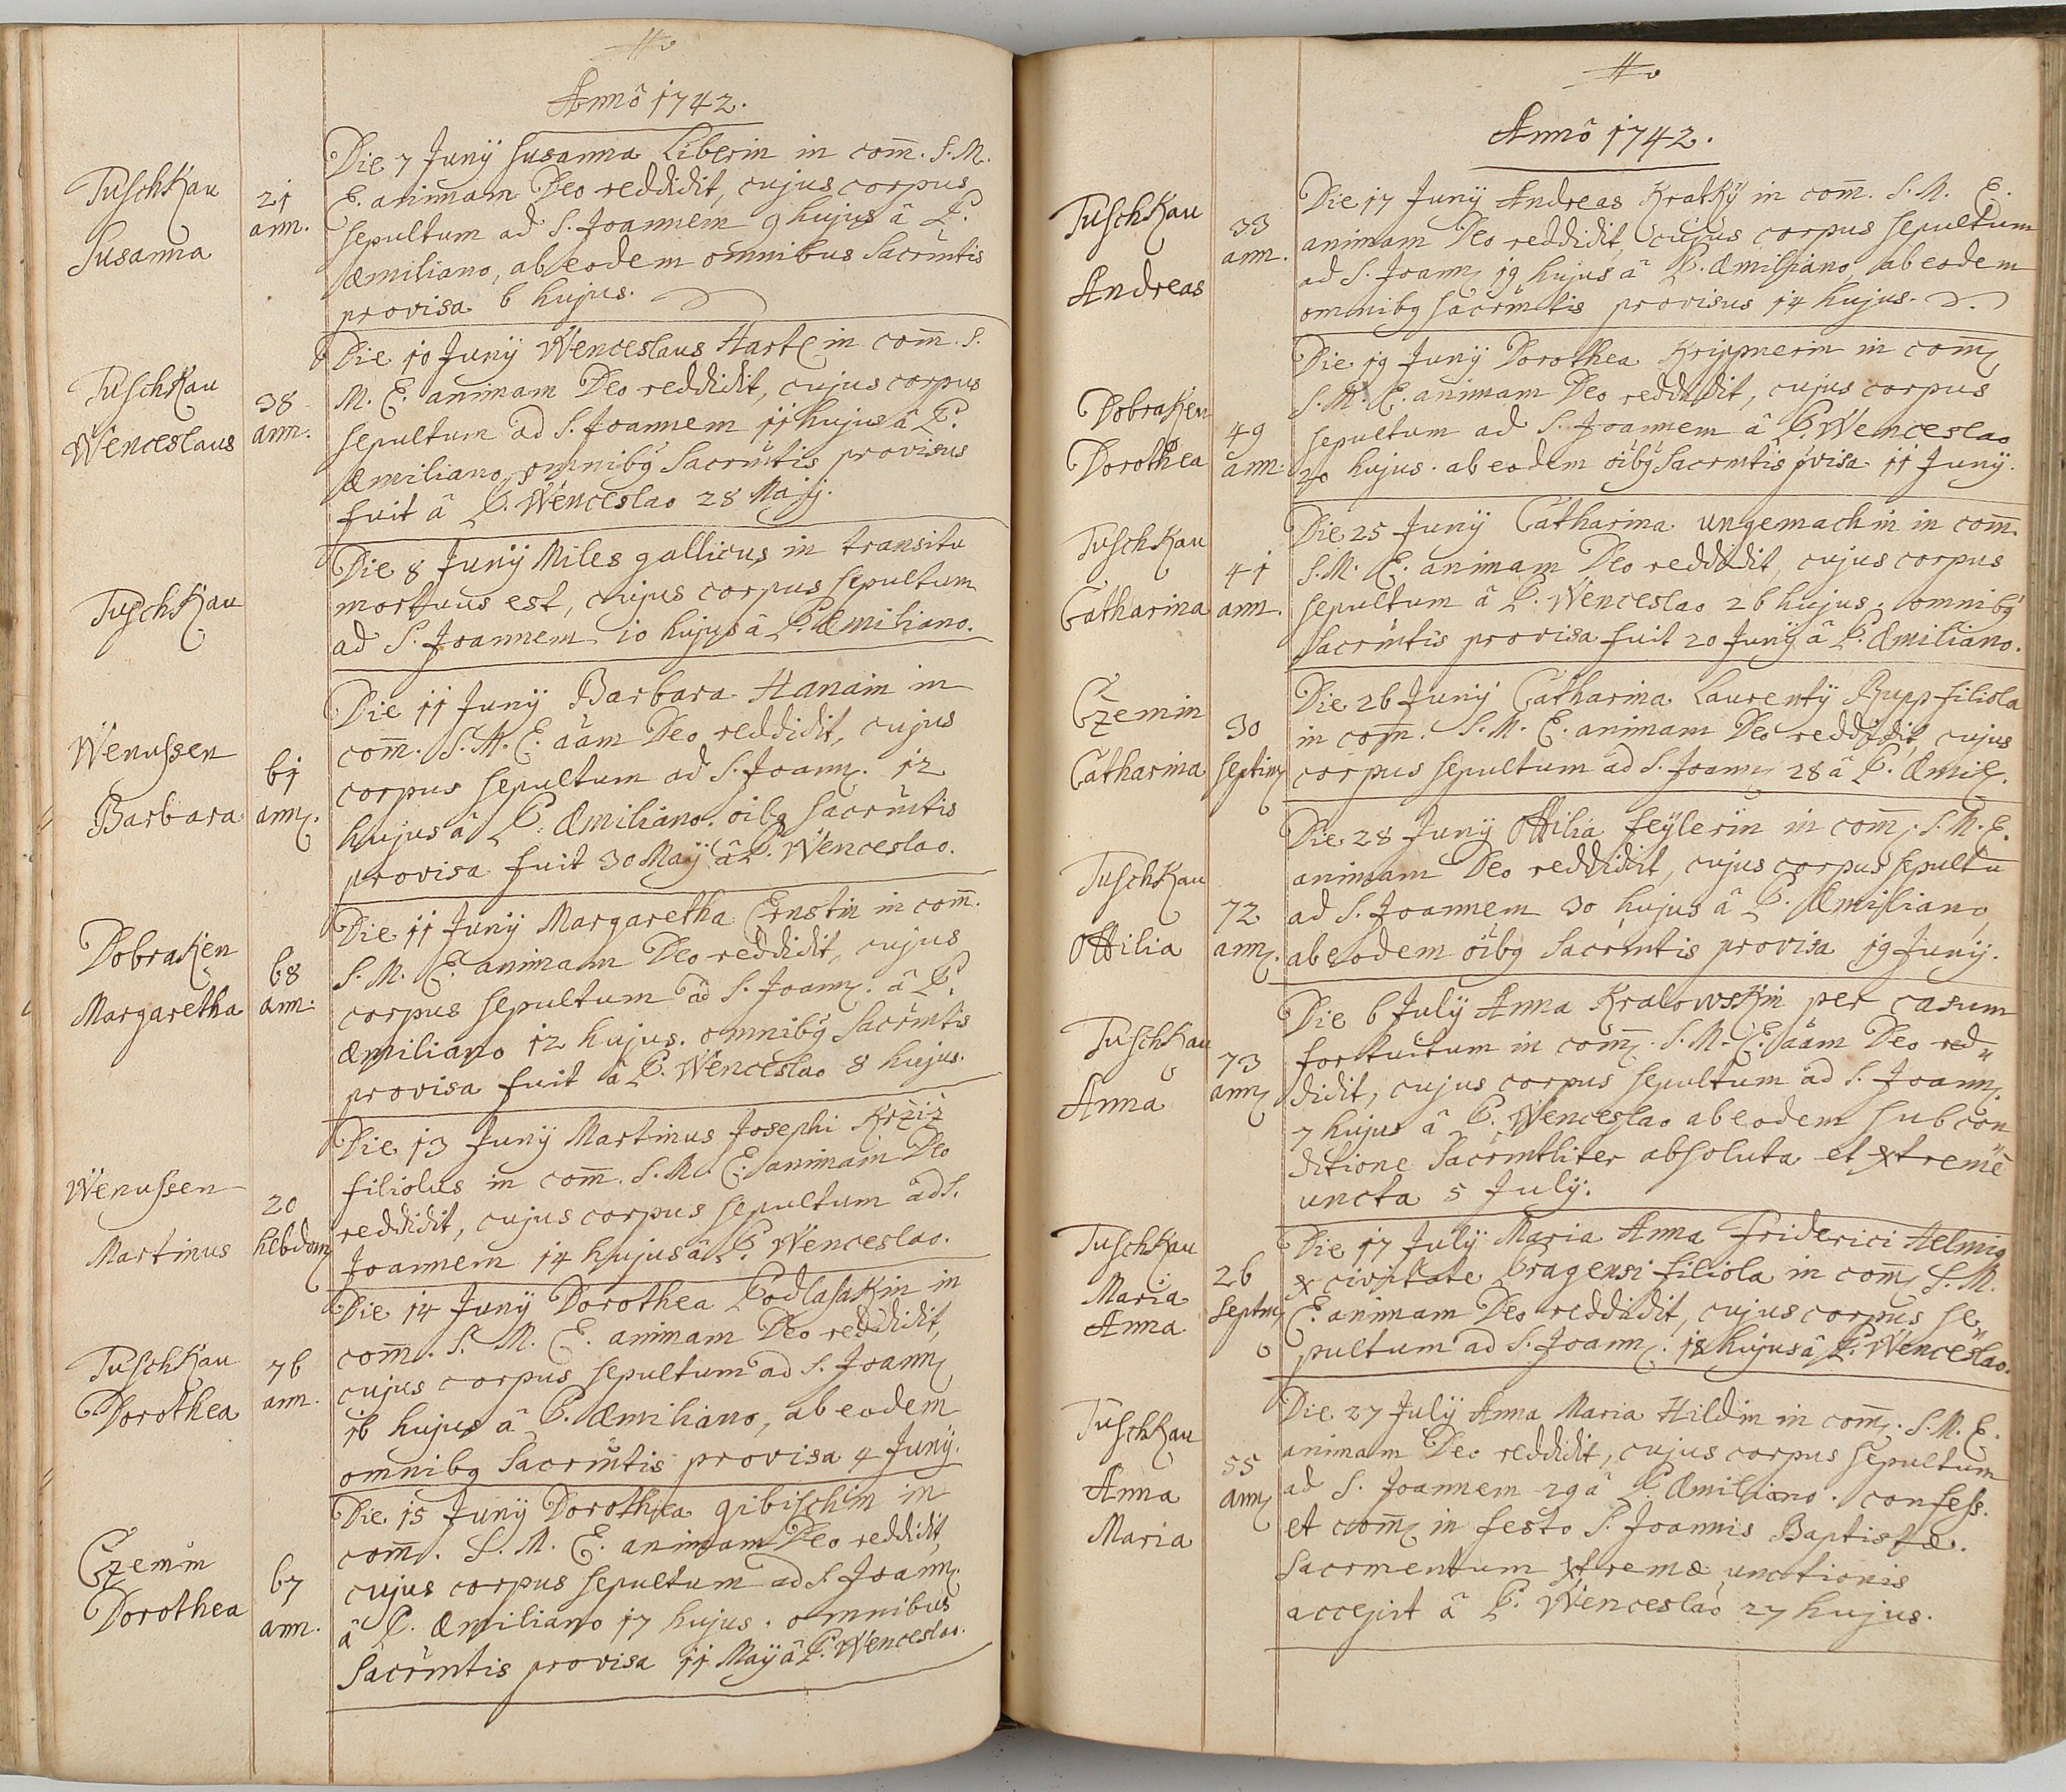 Annô 1742.
Tuschkau
Susanna
21
ann.
Die 7 Junÿ Susanna Liberin in com̄. S. M.
E. animam Deo reddidit, cujus corpus
sepultum ad S. Joannem 9 hujus â P.
Æmiliano, ab eodem omnibus Sacrmtis
provisa 6 hujus.
Tuschkau
Wenceslaus
38
ann.
Die 10 Junÿ Wenceslaus Hartl in com̄. S.
M. E. animam Deo reddidit, cujus corpus
sepultum ad S. Joannem 11 hujus â P.
Æmiliano, omnibq Sacrmtis provisus
fuit â P. Wenceslao 28 Maÿ.
Tuschkau
Die 8 Junÿ Miles gallicus in transitu
mortuus est, cujus corpus sepultum
ad S. Joannem 10 hujus â P. Æmiliano.
Wenussen
Barbara
61
ann.
Die 11 Junÿ Barbara Hanain in
com̄. S. M. E. aâm Deo reddidit, cujus
corpus sepultum ad S. Joann. 12
hujus â P. Æmiliano. oîbq Sacrmtis
provisa fuit 30 Maÿ â P. Wenceslao.
Dobraken
Margaretha
68
ann:
Die 11 Junÿ Margaretha Ernstin in com̄.
S. M. E. animam Deo reddidit, cujus
corpus sepultum ad S. Joann. â P.
Æmiliano 12 hujus. omnibq Sacrmtis
provisa fuit â P. Wenceslao 8 hujus.
Wenussen
Martinus
20
hebdom
Die 13 Junÿ Martinus Josephi Krziz
filiolus in com̄. S. M. E. animam Deo
reddidit, cujus corpus sepultum ad S.
Joannem 14 hujus â P. Wenceslao.
Tuschkau
Dorothea
76
ann.
Die 14 Junÿ Dorothea Podlasakin in
com̄. S. M. E. animam Deo reddidit,
cujus corpus sepultum ad S. Joann.
16 hujus â P. Æmiliano, ab eodem
omnibq Sacrmtis provisa 4 Junÿ.
Czemin
Dorothea
67
ann.
Die 15 Junÿ Dorothea gibischin in
com̄. S. M. E. animam Deo reddidit,
cujus corpus sepultum ad S. Joann.
â P. Æmiliano 17 hujus. omnibus
Sacrmtis provisa 11 Maÿ â P. Wenceslao.
Annô 1742.
Tuschkau
Andreas
33
ann.
Die 17 Junÿ Andreas Kratkÿ in com̄. S. M. E.
animam Deo reddidit, cujus corpus sepultum
ad S. Joann. 19 hujus â P. Æmiliano, ab eodem
omnibq Sacrmtis provisus 14 hujus.
Dobraken
Dorothea
49
ann.
Die 19 Junÿ Dorothea Krippnerin in com̄.
S. M. E. animam Deo reddidit, cujus corpus
sepultum ad S. Joannem â P. Wenceslao
20 hujus. ab eodem oîbq Sacrmtis pvisa 11 Junÿ.
Tuschkau
Catharina
41
ann.
Die 25 Junÿ Catharina ungemachin in com̄.
S. M. E. animam Deo reddidit, cujus corpus
sepultum â P. Wenceslao 26 hujus. omnibq
Sacrmtis provisa fuit 20 Junÿ â P. Æmiliano.
Czemin
Catharina
30
septim.
Die 26 Junÿ Catharina Laurentÿ Rupp filiola
in com̄. S. M. E. animam Deo reddidit, cujus
corpus sepultum ad S. Joann. 28 â P. Æmil.
Tuschkau
Ottilia
72
ann.
Die 28 Junÿ Ottilia feÿlerin in com̄. S. M. E.
animam Deo reddidit, cujus corpus sepultū
ad S. Joannem 30 hujus â P. Æmiliano,
ab eodem oîbq Sacrmtis provisa 19 Junÿ.
Tuschkau
Anna
73
ann.
Die 6 Julÿ Anna Kralowskin per casum
fortuitum in com̄. S. M. E. aâm Deo red„
didit, cujus corpus sepultum ad S. Joann.
7 hujus â P. Wenceslao ab eodem sub con„
ditione Sacrmtliter absoluta et xtremê
uncta 5 Julÿ.
Tuschkau
Maria
Anna
26
septim.
Die 17 Julÿ Maria Anna Friderici Helmig
x civitate Pragensi filiola in com̄. S. M.
E. animam Deo reddidit, cujus corpus se„
pultum ad S. Joann. 18 hujus â P. Wenceslao.
Tuschkau
Anna
Maria
55
ann.
Die 27 Julÿ Anna Maria Hildin in com̄. S. M. E.
animam Deo reddidit, cujus corpus sepultum
ad S. Joannem 29 â P. Æmiliano. confess.
et com̄. in festo S. Joannis Baptistæ.
Sacrmentum xtremæ unctionis
accepit â P. Wenceslao 27 hujus.